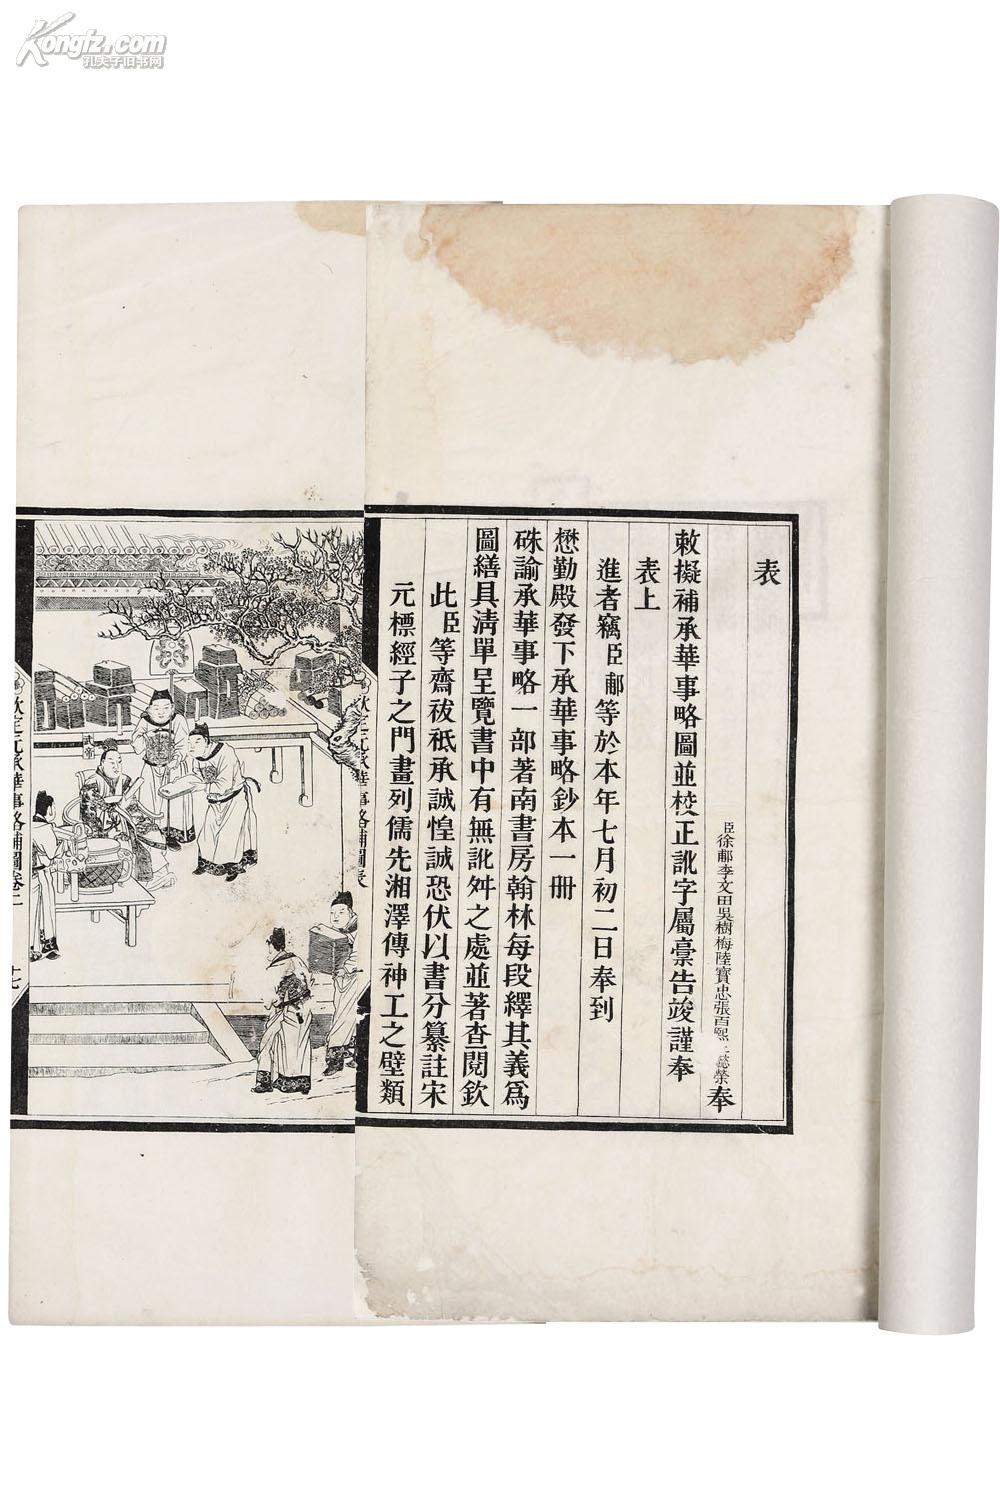 Kongfz.com
孔夫子旧书网
表
臣徐郙李文田吳樹梅陸寶忠張百熙懿榮奉
敕擬補承華事略圖並校正訛字屬稾告竣謹奉
表上
進者竊臣郙等於本年七月初二日奉到
懋勤殿發下承華事略鈔本一冊
硃諭承華事略一部著南書房翰林每段繹其義爲
圖繕具清單呈覽書中有無訛舛之處並著查閱欽
此臣等齋祓祇承誠惶誠恐伏以書分纂註宋
元標經子之門畫列儒先湘澤傳神工之壁類
欽定元承華事略補圖表
一
武帝
欽定元承華事略補圖卷二
十七